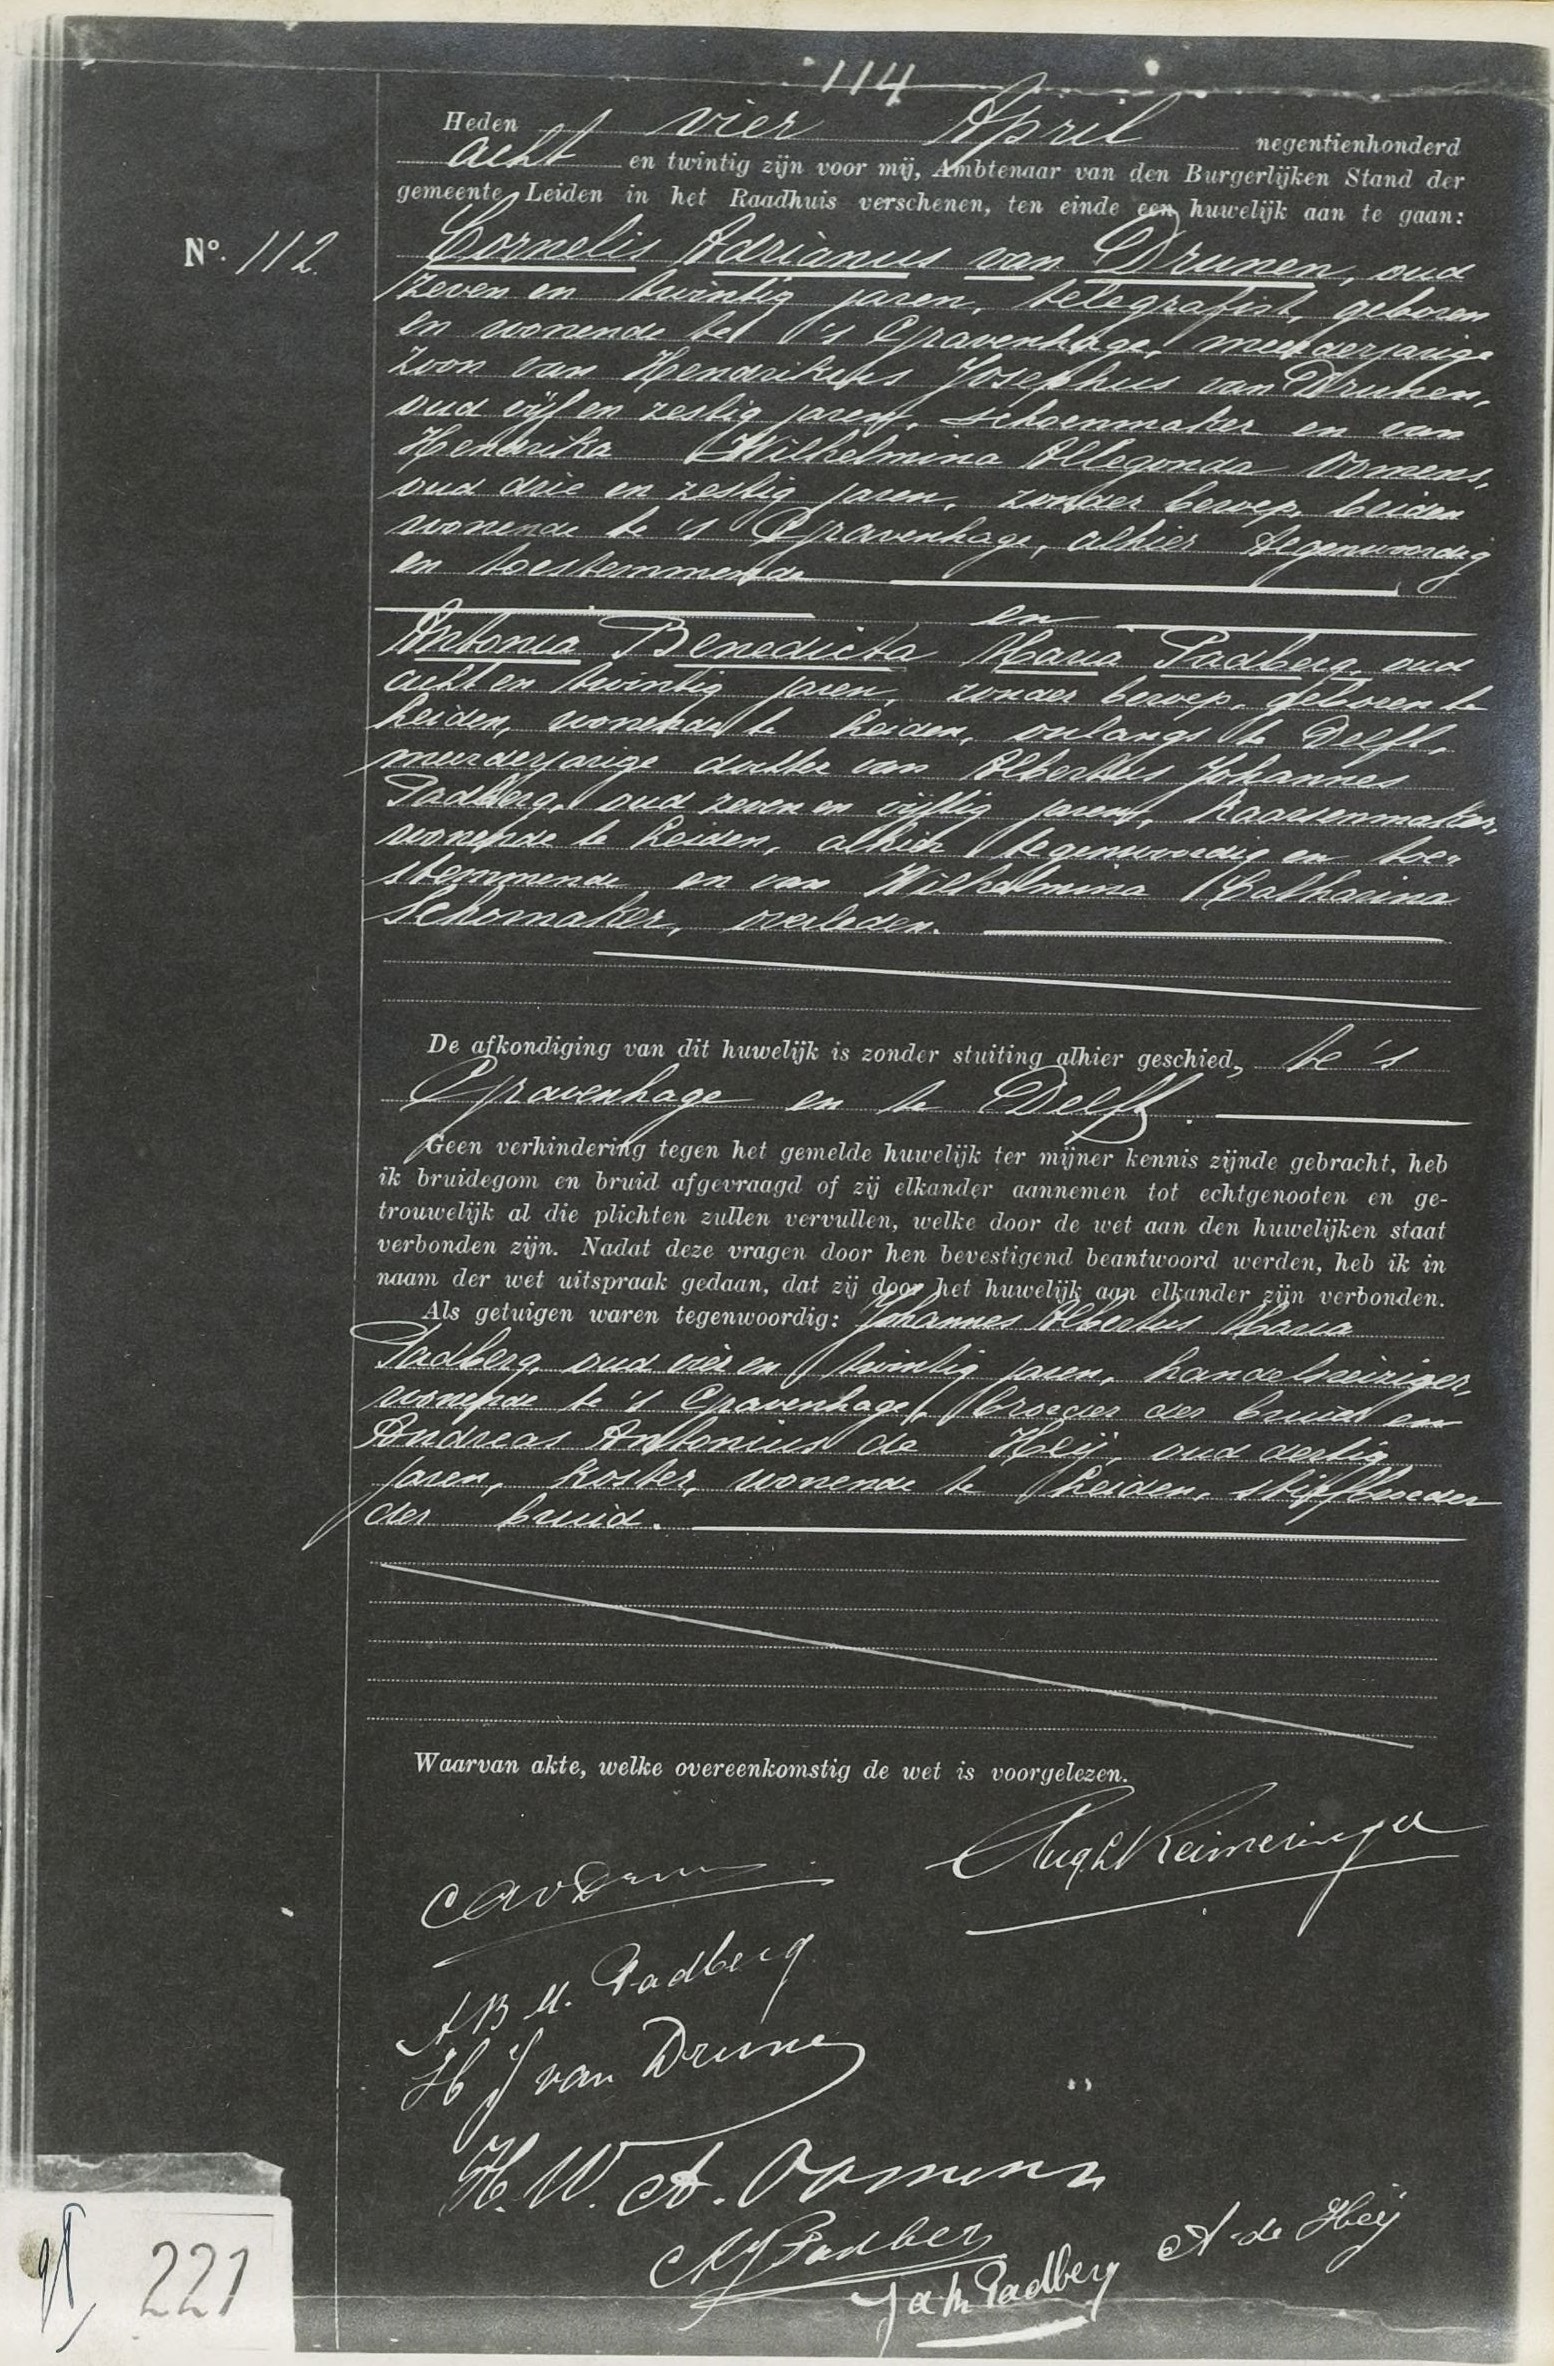 114
Heden vier April negentienhonderd
acht en twintig zijn voor mij, Ambtenaar van den Burgerlijken Stand der
gemeente Leiden in het Raadhuis verschenen, ten einde een huwelijk aan te gaan:
No. 112.
Cornelis Adrianus van Drunen, oud
zeven en twintig jaren, telegrafist, geboren
en wonende te 's Gravenhage, meerderjarige
zoon van Hendrikus Josephus van Drunen,
oud vijf en zestig jaren, schoenmaker en van
Hendrika Wilhelmina Allegonda Oomens,
oud drie en zestig jaren, zonder beroep, beiden
wonende te 's Gravenhage, alhier tegenwoordig
en toestemmende
en
Antonia Benedicta Maria Padberg, oud
acht en twintig jaren, zonder beroep, geboren te
Leiden, wonende te Leiden, onlangs te Delft,
meerderjarige dochter van Albertus Johannes
Padberg, oud zeven en vijftig jaren, kaarsenmaker,
wonende te Leiden, alhier tegenwoordig en toe-
stemmende en van Wilhelmina Catharina
Schomaker, overleden.
De afkondiging van dit huwelijk is zonder stuiting alhier geschied, te 's
Gravenhage en te Delft.
Geen verhindering tegen het gemelde huwelijk ter mijner kennis zijnde gebracht, heb
ik bruidegom en bruid afgevraagd of zij elkander aannemen tot echtgenooten en ge-
trouwelijk al die plichten zullen vervullen, welke door de wet aan den huwelijken staat
verbonden zijn. Nadat deze vragen door hen bevestigend beantwoord werden, heb ik in
naam der wet uitspraak gedaan, dat zij door het huwelijk aan elkander zijn verbonden.
Als getuigen waren tegenwoordig: Johannes Albertus Maria
Padberg, oud vier en twintig jaren, handelsreiziger,
wonende te 's Gravenhage, broeder der bruid en
Andreas Antonius de Heij, oud dertig
jaren, koster, wonende te Leiden, stiefbroeder
der bruid.
Waarvan akte, welke overeenkomstig de wet is voorgelezen.
Aug L Reimeringer
C A v Drunen
A B M. Padberg
H J van Drunen
H. W. A. Oomens
A J Padberg
A de Heij
J A M Padberg
221